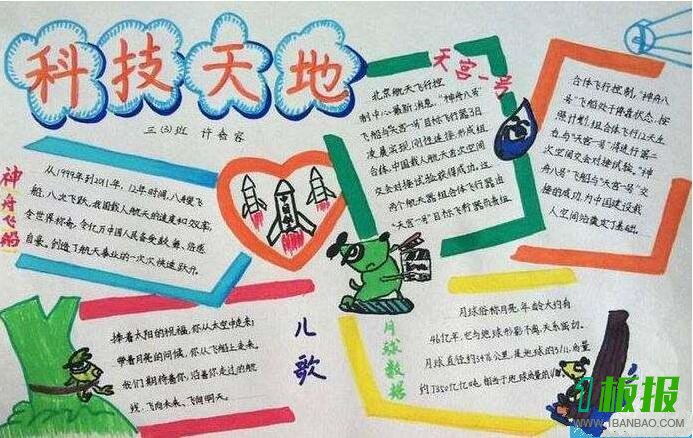 科技天地
三(3)班 许睿容
神舟飞船
从1999年到2011年,12年时间,八艘飞
船,八次飞跃,我国载人航天的速度和效率,
令世界称奇,令亿万中国人民备受鼓舞、倍感
自豪。创造了航天事业的一次次快速跃升。
天宫一号
北京航天飞行控
制中心最新消息,"神舟八号"
飞船与"天宫一号"目标飞行器3日
凌晨实现刚性连接,形成组
合体,中国载人航天首次空间
交会对接试验获得成功,这
次两个航天器组合体飞行器由
"天宫一号"目标飞行器负责组
合体飞行控制,"神舟八
号"飞船处于停靠状态。按
预计计划,组合体飞行12天左
右与"天宫一号"将进行第二
次空间交会对接试验。"神
舟八号"飞船与"天宫一号"交
接的成功,为中国建设载
人空间站奠定了基础。
儿歌
捧着太阳的祝福,你从太空中走来;
带着月亮的问候,你从飞船上走来。
我们期待着你,沿着你走过的航
线,飞向未来、飞向明天。
月球数据
月球俗称月亮,年龄大约有
46亿年,它与地球形影不离,关系密切。
月球直径约3476公里,是地球的3/11,质量
约7350亿亿吨,相当于地球质量的1/
1板报
WWW.1BANBAO.COM